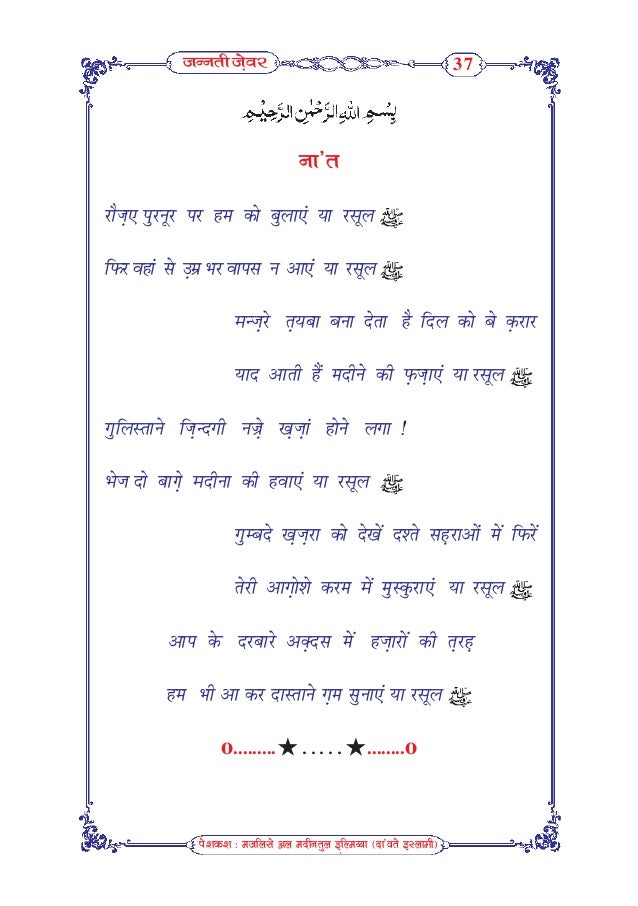 जन्नती जे़वर
37
بِسْمِ اللهِ الرَّحْمٰنِ الرَّحِيْمِ
ना'त
रौज़ए पुरनूर पर हम को बुलाएं या रसूल ﷺ
फिर वहां से उ़म्र भर वापस न आएं या रसूल ﷺ
मन्ज़रे त़यबा बना देता है दिल को बे क़रार
याद आती हैं मदीने की फ़ज़ाएं या रसूल ﷺ
गुलिस्ताने ज़िन्दगी नज़्रे ख़ज़ां होने लगा !
भेज दो बाग़े मदीना की हवाएं या रसूल ﷺ
गुम्बदे ख़ज़रा को देखें दश्ते सह़राओं में फिरें
तेरी आग़ोशे करम में मुस्कुराएं या रसूल ﷺ
आप के दरबारे अक़्दस में हज़ारों की त़रह़
हम भी आ कर दास्ताने ग़म सुनाएं या रसूल ﷺ
0.........★.....★........0
पेशकश : मजलिसे अल मदीनतुल इ़ल्मिय्या (दा'वते इस्लामी)